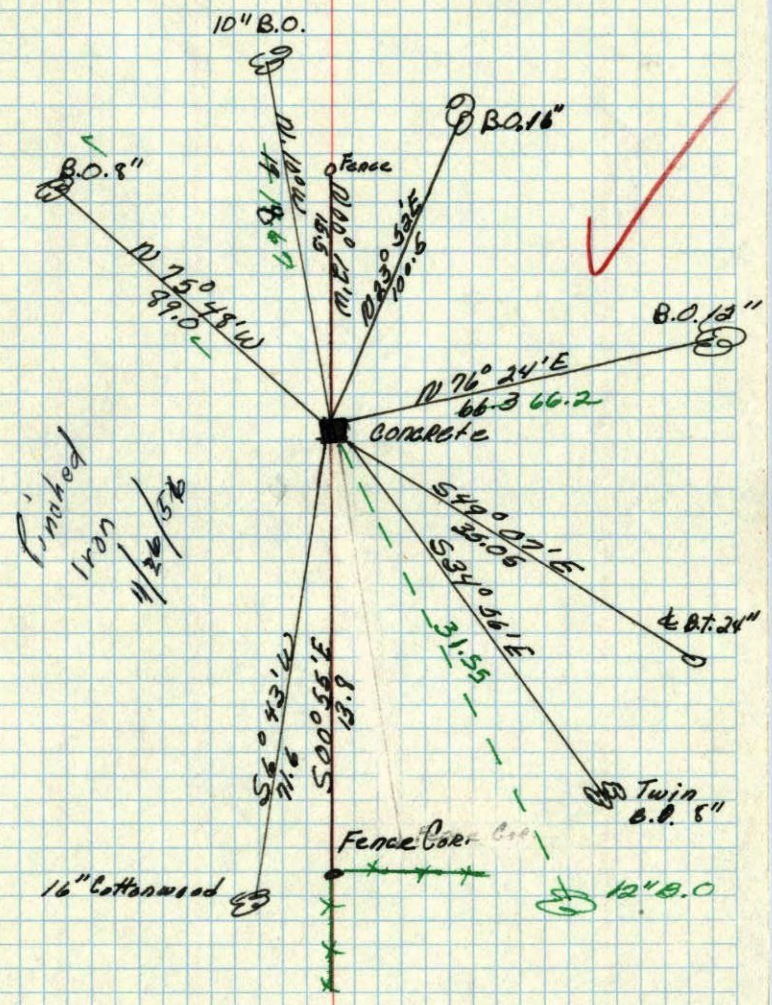 10" B.O.
B.O. 16"
B.O. 8"
Fence
N 10° W
N 00° 12' W
155
N 23° 52' E
100.5
N 75° 48' W
89.0
B.O. 12"
N 76° 24' E
66.3 66.2
concrete
Pinched
Iron
11/26/56
S 49° 07' E
35.05
S 34° 56' E
31.55
℄ B.T. 24"
S 6° 43' W
71.6
S 00° 55' E
13.8
Twin
B.O. 8"
Fence Cor.
16" Cottonwood
12" B.O